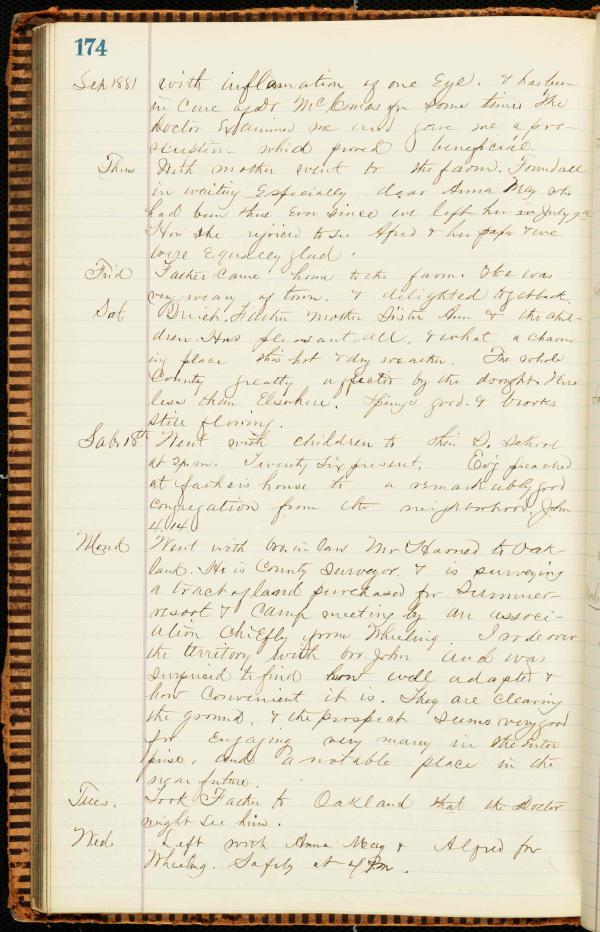 174
Sep 1881 with inflamation of one Eye. & has been
in Care of Dr. McComas for Some time The
Doctor Examined me and gave me a pre-
scription which proved beneficial.
Thurs With mother went to the farm. Found all
in waiting Especially dear Anna May who
had been there Ever Since we left her in July
How She rejoiced to See Alfred & her papa & we
were Equally glad.
Frid Father Came home to the farm. He was
very weary of town. & delighted to get back.
Sat Father Mother Sister Ann & the chil-
dren. Has pleasant all, & what a charm
ing place this hot & dry weather. The whole
County greatly affected by the drought. Here
less than Elsewhere. Springs good. & brooks
Still flowing.
Sab. 18th Went with children to their S. School
at 2 pm. Twenty Six present. Ev'g preached
at father's house to a remarkably good
congregation from the neighborhood. John
4:14
Mond Went with bro. in law Mr Harned to Oak-
land. He is County Surveyor. & is surveying
a tract of land purchased for Summer-
resort & Camp meeting by an associ-
ation Chiefly from Wheeling. I rode over
the territory with bro. John and was
Surprised to find how well adapted &
how Convenient it is. They are clearing
the ground, & the prospect Seems very good
for Engaging very many in the enter
prise, and a notable place in the
near future.
Tues. Took Father to Oakland that the Doctor
might See him.
Wed Left with Anna May & Alfred for
Wheeling. Safely at pm.